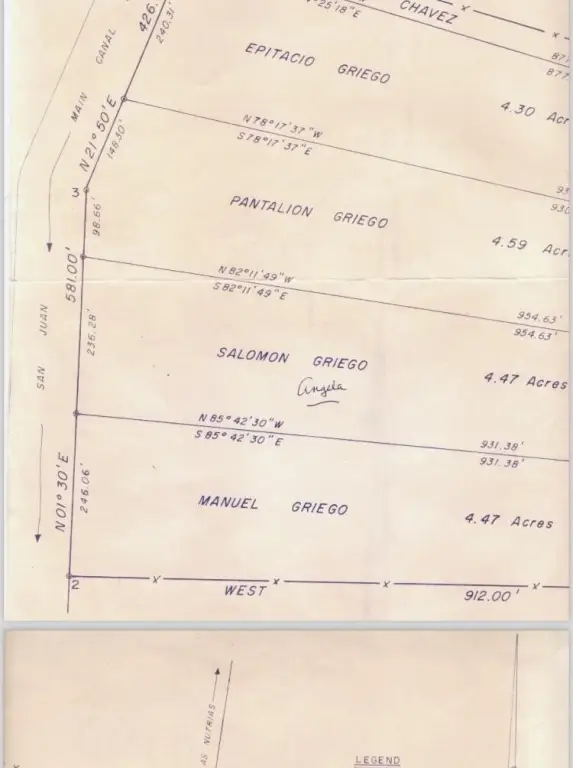 °25'18"E
CHAVEZ
426.
240.31'
877
EPITACIO GRIEGO
4.30 Acr
MAIN CANAL
N 21° 50' E
148.30'
N 78° 17' 37" W
S 78° 17' 37" E
93
930
3
98.66'
PANTALION GRIEGO
4.59 Acr
581.00'
N 82° 11' 49" W
S 82° 11' 49" E
954.63'
954.63'
SAN JUAN
236.28'
SALOMON GRIEGO
Angela
4.47 Acres
N 85° 42' 30" W
S 85° 42' 30" E
931.38'
931.38'
N 01° 30' E
246.06'
MANUEL GRIEGO
4.47 Acres
2
WEST
912.00'
AS NUTRIAS
LEGEND